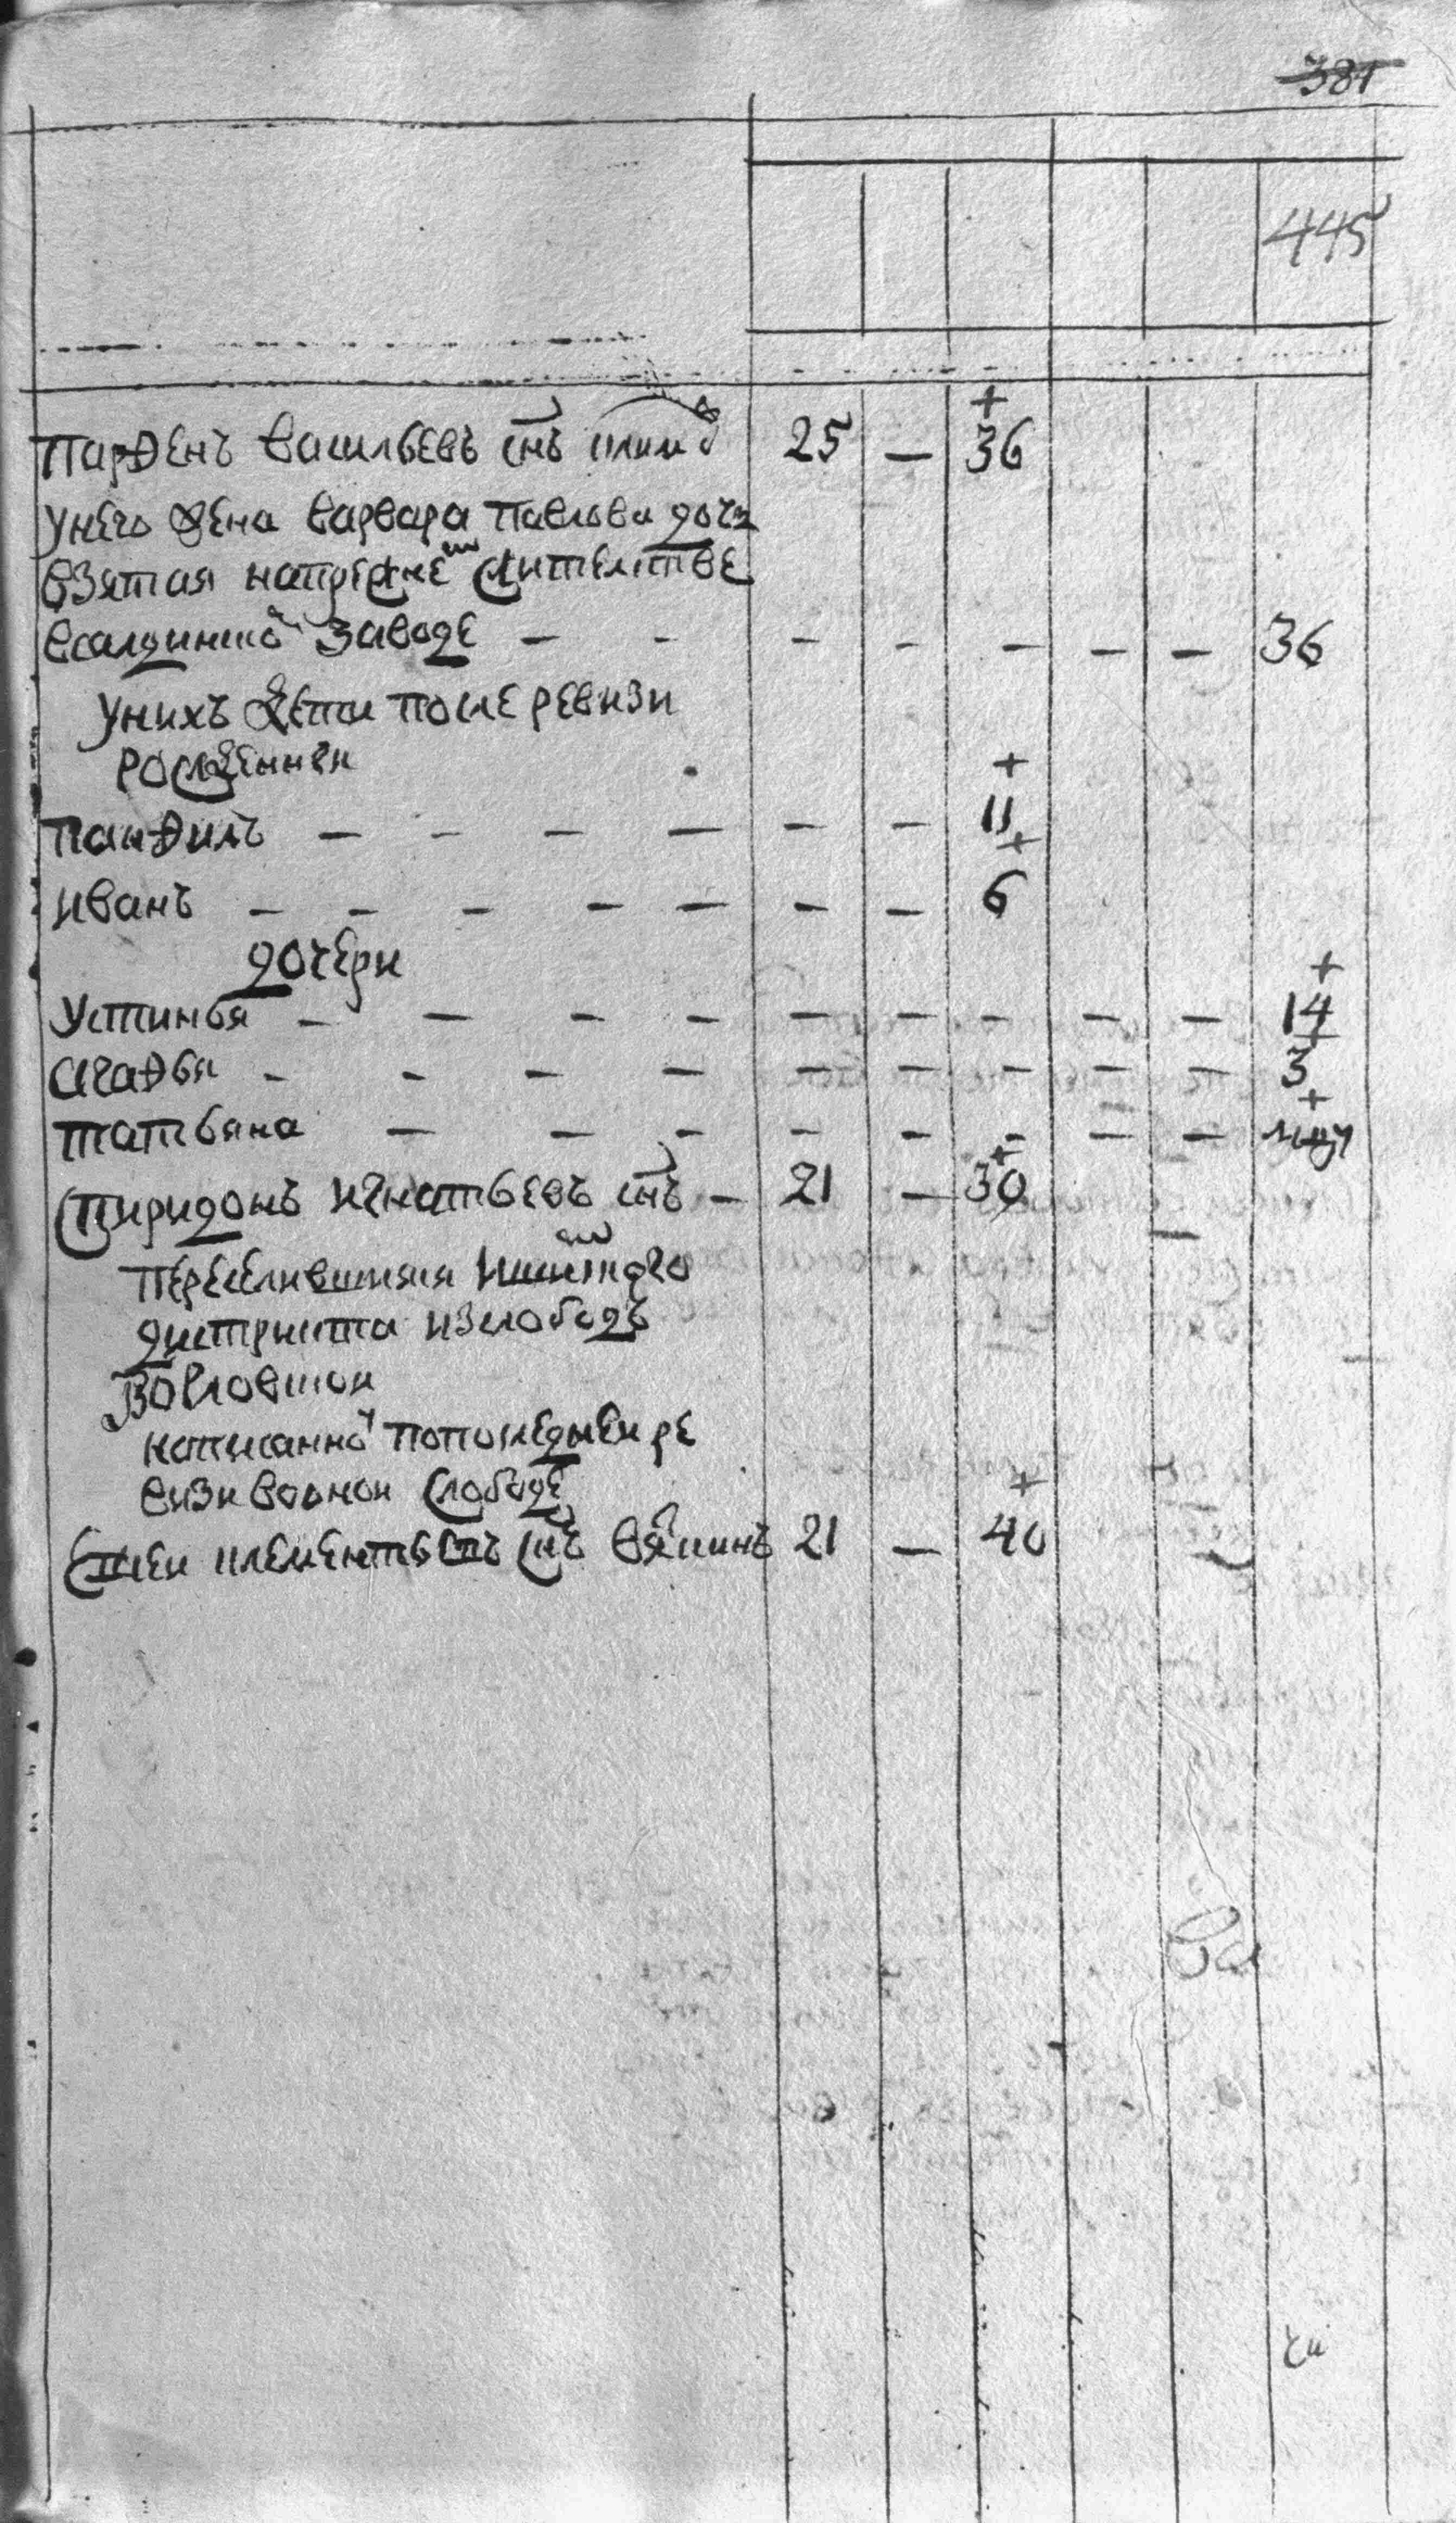 381
445
Парфенъ Васильевъ снъ 25 — 36
унего жена Варвара Павлова доч
взятая напрежне жителстве
всалдинско заводе — — — — — — — 36
унихъ дети после ревизи
рожденныи
Панфилъ — — — — — — 11
Иванъ — — — — — — — 6
дочери
Устинья — — — — — — — — — 14
Агафья — — — — — — — — — 3
Татьяна — — — — — — — —
Спиридонъ Игнатьевъ снъ — 21 — 30
переселившияся
дистрикта изслободъ
написанно попоследнеи ре
визи воонои слободе
Клементьевъ снъ 21 — 40